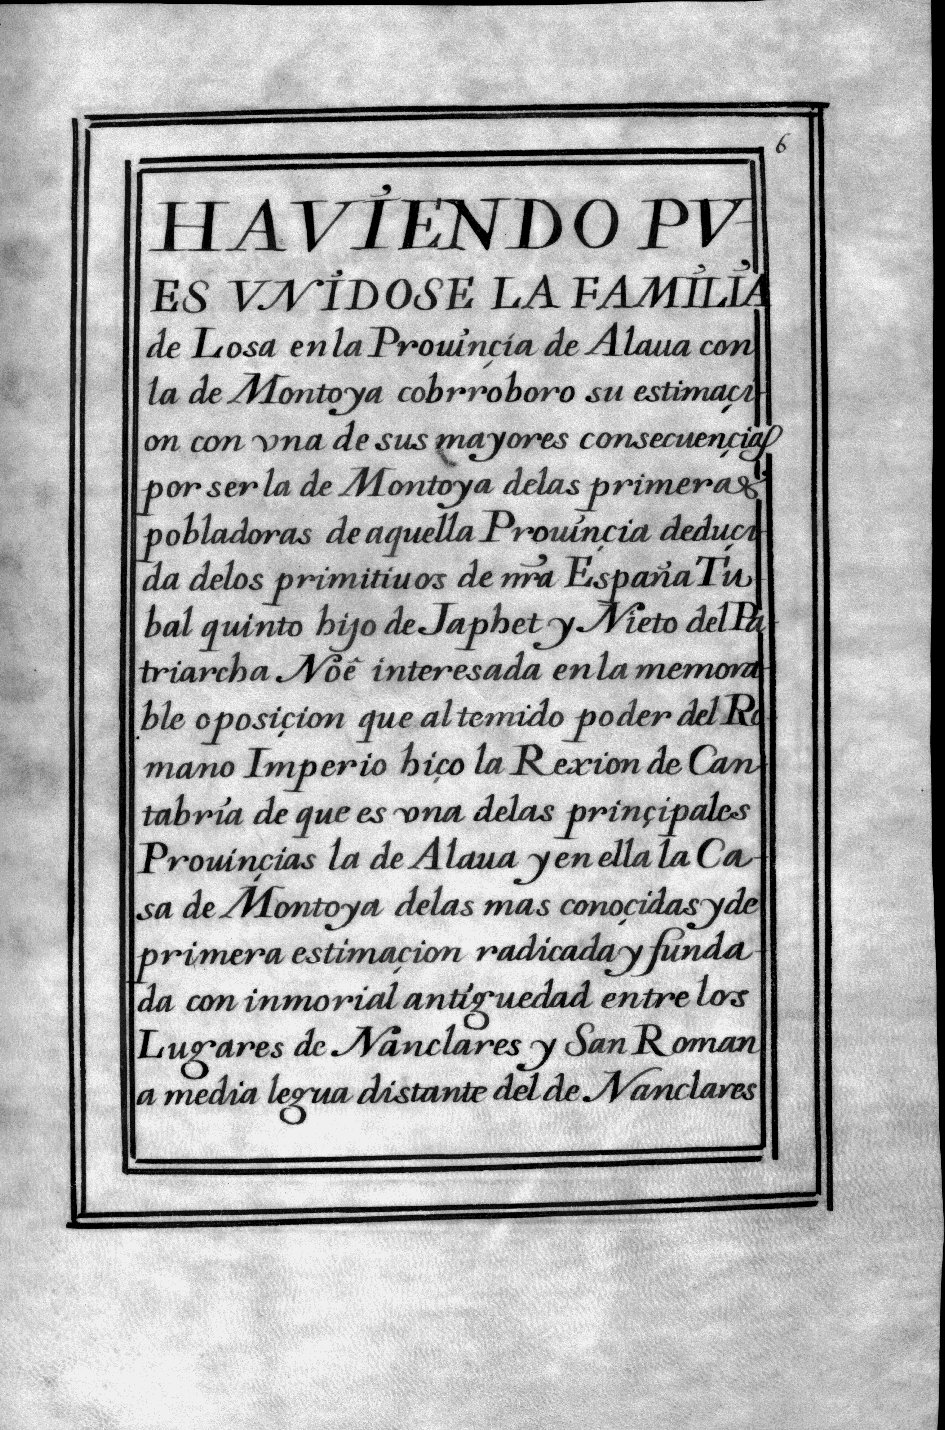 6
HAVIENDO PV-
ES VNIDOSE LA FAMILIA
de Losa en la Prouinçía de Alaua con
la de Montoya cobrroboro su estimaçi-
on con vna de sus mayores consecuençias
por ser la de Montoya delas primeras
pobladoras de aquella Prouinçia deduçi-
da delos primitiuos de nr̃a España Tu-
bal quinto hijo de Japhet y Nieto del Pa-
triarcha Noê interesada en la memora-
ble oposiçion que al temido poder del Ro-
mano Imperio hiço la Rexion de Can-
tabría de que es vna delas prinçipales
Prouinçias la de Alaua y en ella la Ca-
sa de Montoya delas mas conoçidas y de
primera estimaçion radicada y funda-
da con inmorial antiguedad entre los
Lugares de Nanclares y San Roman
a media legua distante del de Nanclares